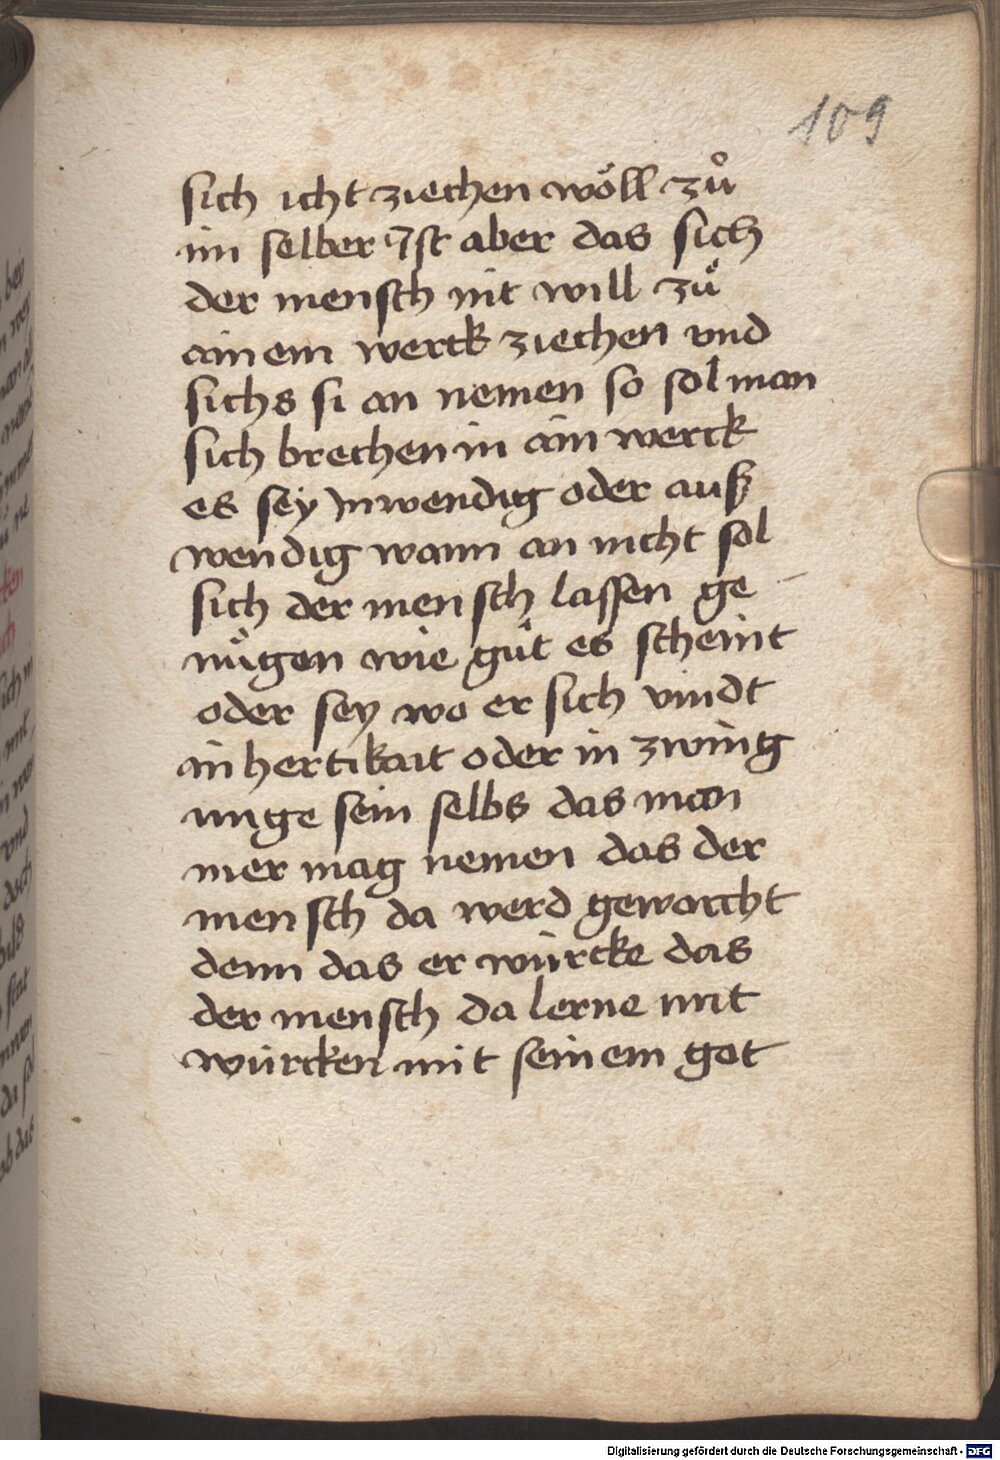 109
sich icht ziechen wöll zů
im selber Ist aber das sich
der mensch nit will zů
ainem werck ziechen vnd
sichs si an nemen so sol man
sich brechen in ain werck
es sey Inwendig oder auß
wendig wann an nicht sol
sich der mensch lassen ge
nügen wie gůt es scheint
oder sey wo er sich vindt
in hertikait oder in zwing
unge sein selbs das man
mer mag nemen das der
mensch da werd geworcht
denn das er würcke das
der mensch da lerne mit
würcken mit seinem got
Digitalisierung gefördert durch die Deutsche Forschungsgemeinschaft - DFG